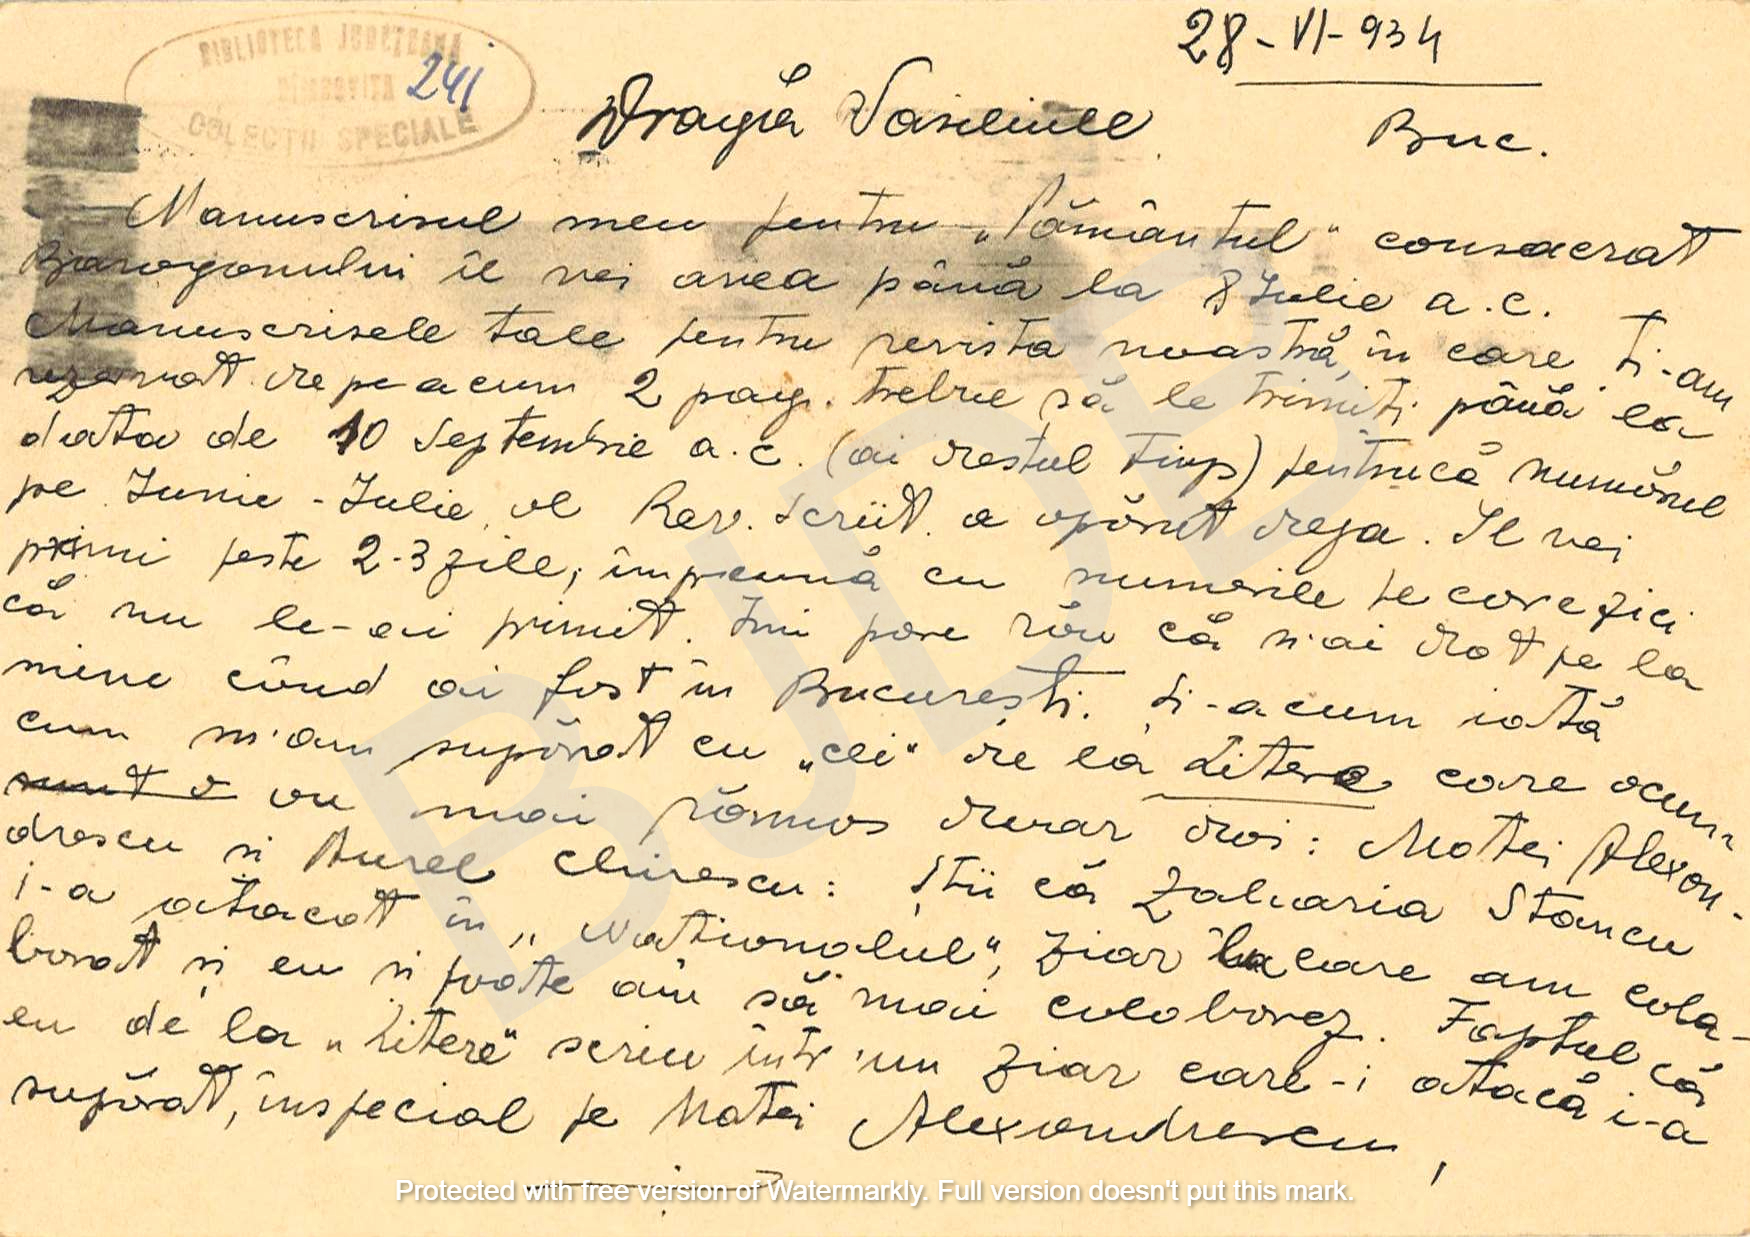 BIBLIOTECA JUDEȚEANĂ
DÎMBOVIȚA
COLECȚII SPECIALE
241
28-VI-934
Buc.
Dragă Vasiliule
Manuscrisul meu pentru „Pământul" consacrat
Baraganului îl vei avea până la 8 Iulie a.c.
Manuscrisele tale pentru revista noastră, în care ți-am
rezervat de pe acum 2 pag. trebue să le trimiți până la
data de 10 Septembrie a.c. (ai destul timp) pentrucă numărul
pe Iunie - Iulie, al Rev. Scriit. a apărut deja. Il vei
primi peste 2-3 zile, împreună cu numerile pe care zici
că nu le-ai primit. Imi pare rău că n'ai dat pe la
mine când ai fost în București. Și-acum iată
cum m'am supărat cu „cei" de la Litere care acum
au mai rămas doar doi: Matei Alexan-
drescu și Aurel Chirescu: Știi că Zaharia Stancu
i-a atacat în „Naționalul", ziar la care am cola-
borat și eu și poate am să mai colaborez. Faptul că
eu de la „Litere" scriu într'un ziar care-i atacă i-a
supărat, înspecial pe Matei Alexandrescu,
BJD
Protected with free version of Watermarkly. Full version doesn't put this mark.